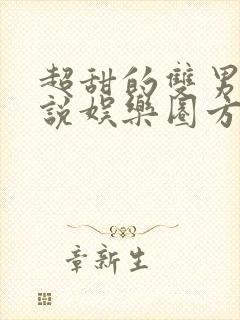 超甜的雙男
說娛樂圈方
章新生